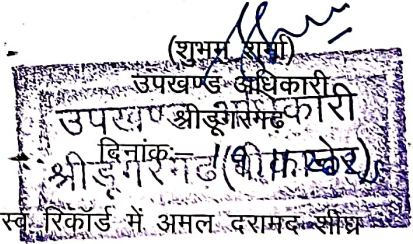 (शुभम शर्मा)
उपखण्ड अधिकारी
श्रीडूंगरगढ़
उपखण्ड अधिकारी
दिनांक:-
श्रीडूंगरगढ़ (बीकानेर)
स्व रिकॉर्ड में अमल दरामद शीघ्र